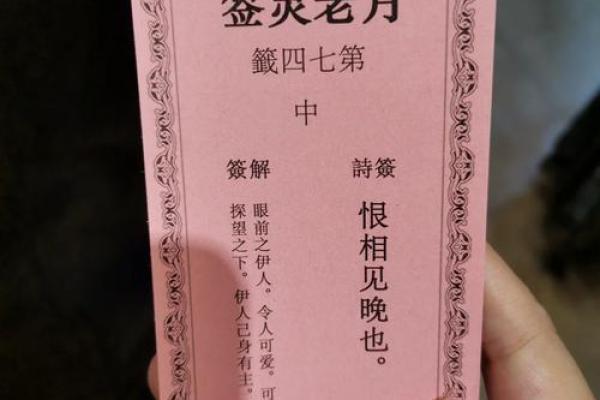 月老灵签
第七四籤
中
簽詩
恨相见晚也。
解簽
眼前之伊人。令人可爱。可
探望之下。伊人己身有主。